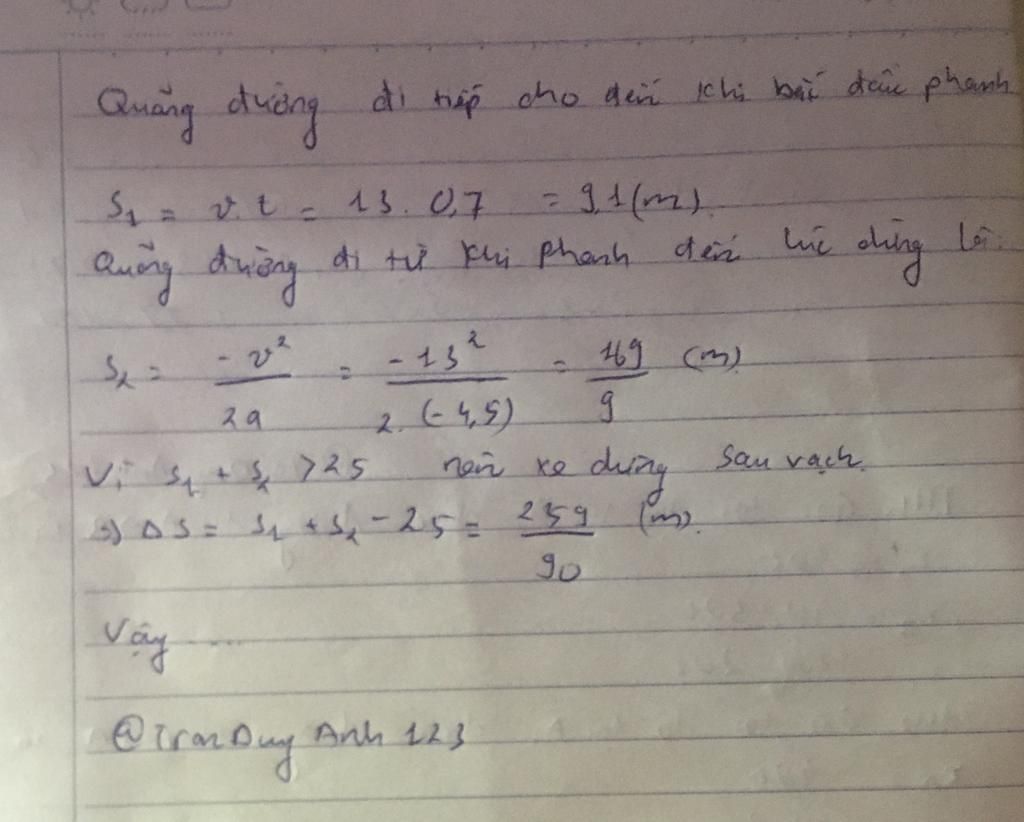 Quãng đường đi tiếp cho đến khi bắt đầu phanh
S₁ = v.t = 13. 0,7 = 9,1(m)
Quãng đường đi từ khi phanh đến lúc dừng lại:
S₂ = -v²/2a = -13²/2.(-4,5) = 169/9 (m)
Vì S₁ + S₂ > 25 nên xe dừng sau vạch.
=> ΔS = S₁ + S₂ - 25 = 259/90 (m).
Vậy ....
@Tran Duy Anh 123